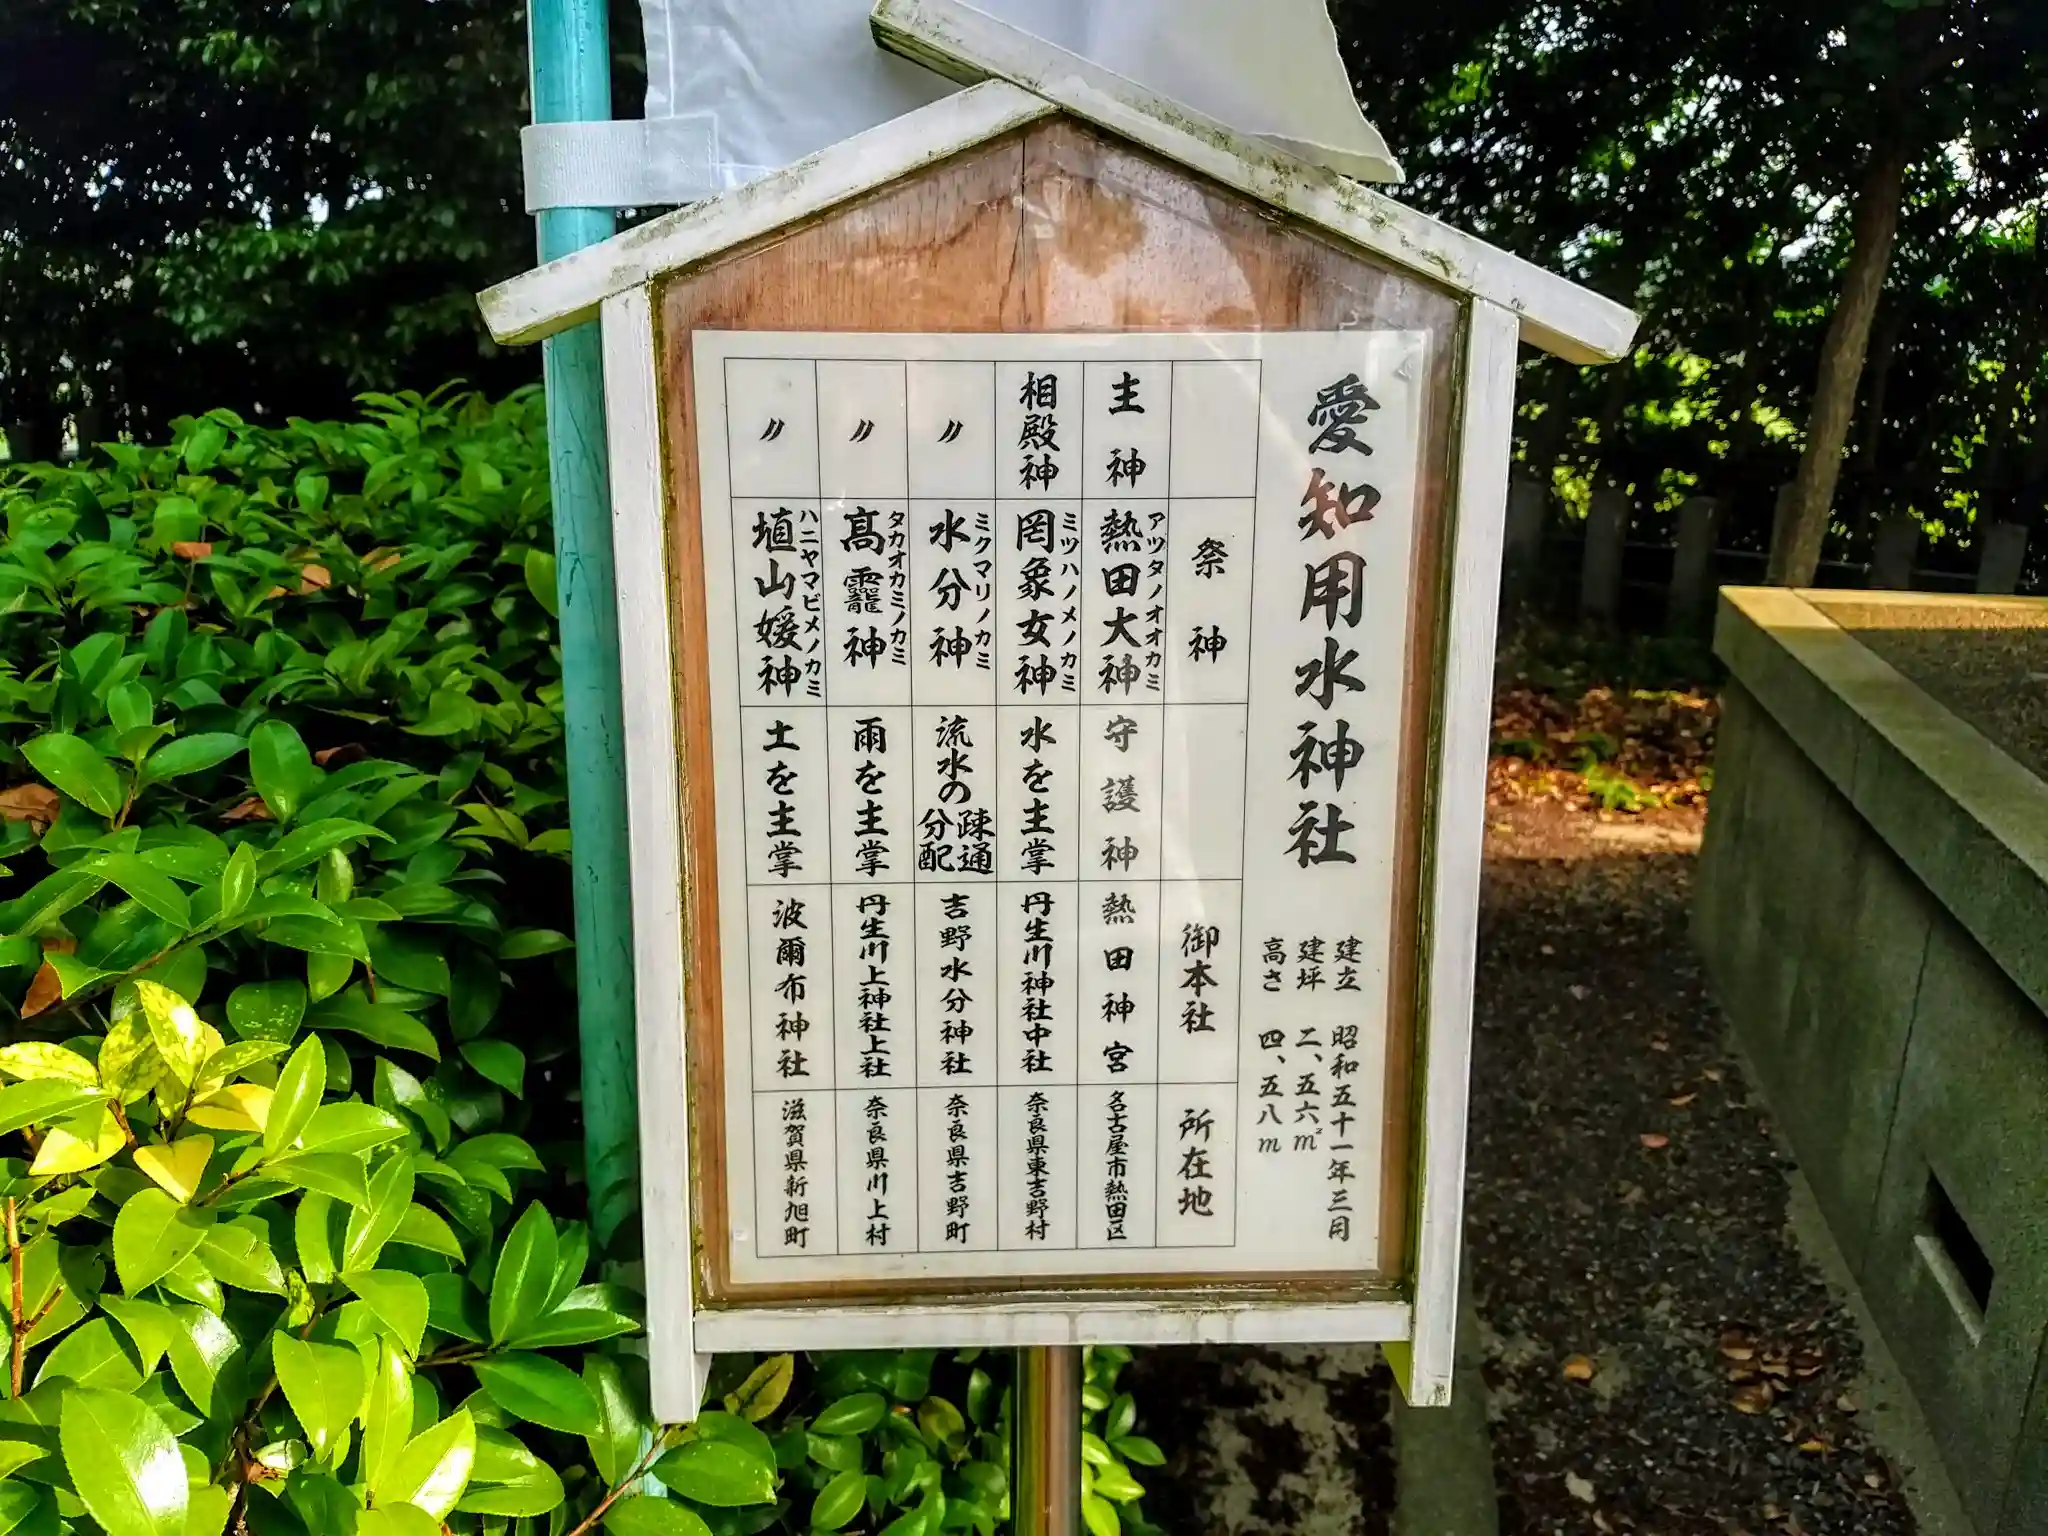 愛知用水神社
建立 昭和五十一年三月
建坪 二、五六㎡
高さ 四、五八m
祭神
御本社
所在地
主神
熱田大神
アツタノオオカミ
守護神
熱田神宮
名古屋市熱田区
相殿神
罔象女神
ミツハノメノカミ
水を主掌
丹生川神社中社
奈良県東吉野村
〃
水分神
ミクマリノカミ
流水の疎通分配
吉野水分神社
奈良県吉野町
〃
髙龗神
タカオカミノカミ
雨を主掌
丹生川上神社上社
奈良県川上村
〃
埴山媛神
ハニヤマビメノカミ
土を主掌
波爾布神社
滋賀県新旭町